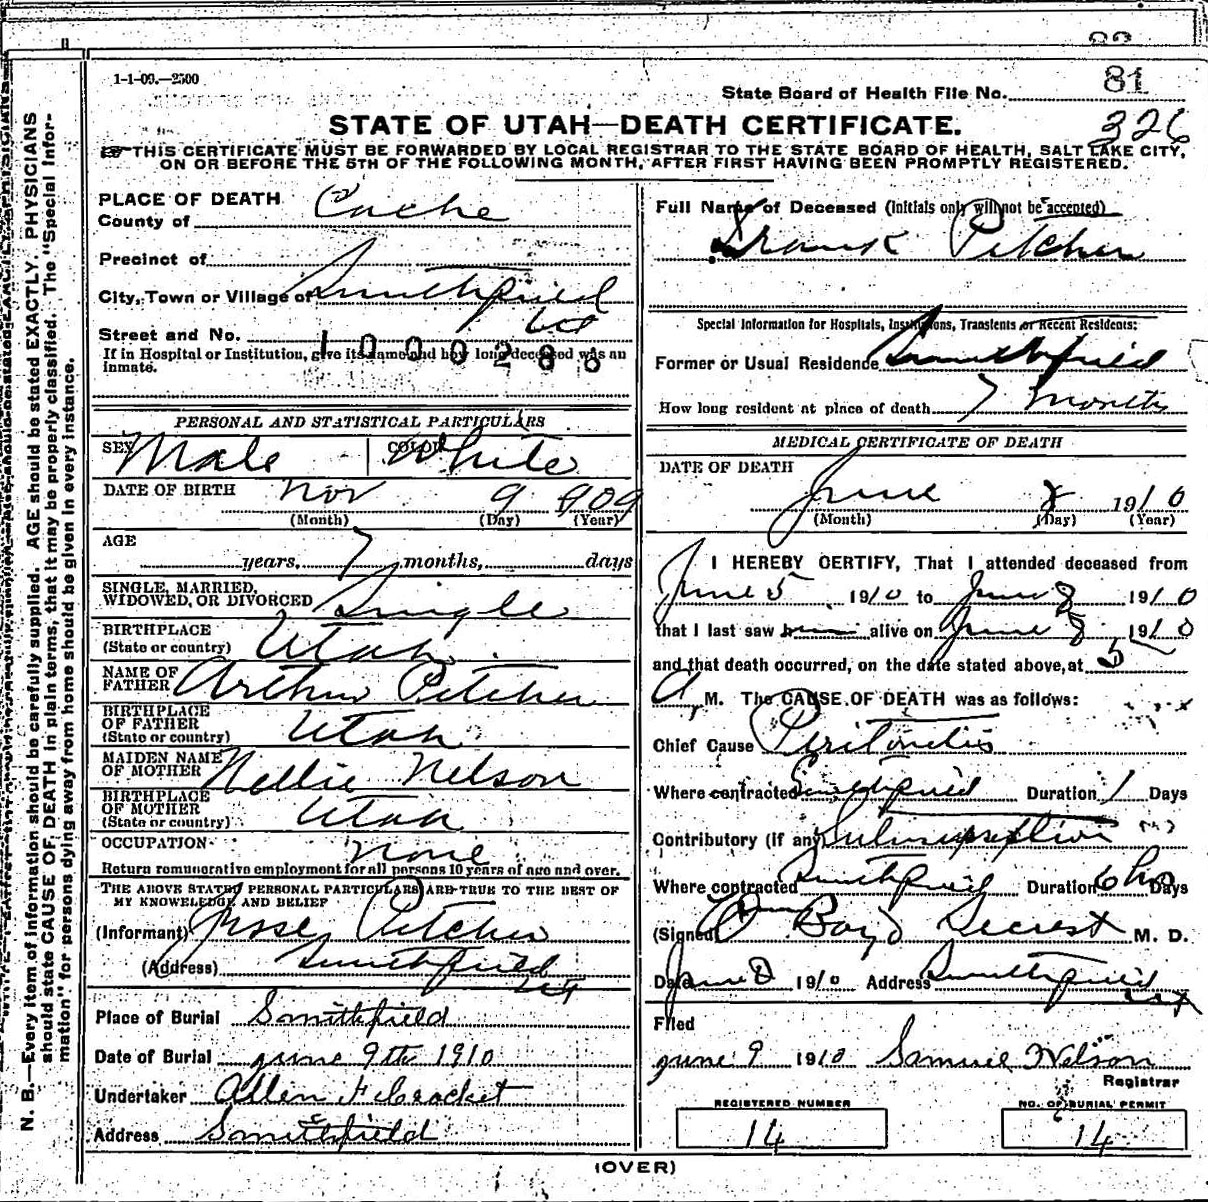 1-1-09.—2500
State Board of Health File No. 81
326
STATE OF UTAH—DEATH CERTIFICATE.
THIS CERTIFICATE MUST BE FORWARDED BY LOCAL REGISTRAR TO THE STATE BOARD OF HEALTH, SALT LAKE CITY,
ON OR BEFORE THE 5TH OF THE FOLLOWING MONTH, AFTER FIRST HAVING BEEN PROMPTLY REGISTERED.
PLACE OF DEATH
County of Cache
Precinct of
City, Town or Village of Smithfield
Street and No.
1000286
If in Hospital or Institution, give its name and how long deceased was an
inmate.
PERSONAL AND STATISTICAL PARTICULARS
SEX Male COLOR White
DATE OF BIRTH Nov 9 1909
(Month) (Day) (Year)
AGE
years, 7 months, days
SINGLE, MARRIED,
WIDOWED, OR DIVORCED Single
BIRTHPLACE
(State or country) Utah
NAME OF
FATHER Arthur Pitcher
BIRTHPLACE
OF FATHER
(State or country) Utah
MAIDEN NAME
OF MOTHER Nellie Nelson
BIRTHPLACE
OF MOTHER
(State or country) Utah
OCCUPATION none
Return remunerative employment for all persons 10 years of age and over.
THE ABOVE STATED PERSONAL PARTICULARS ARE TRUE TO THE BEST OF
MY KNOWLEDGE AND BELIEF
(Informant) Pitcher
(Address) Smithfield
Ut
Place of Burial Smithfield
Date of Burial june 9th 1910
Undertaker Allen
Address Smithfield
Full Name of Deceased (Initials only will not be accepted)
Frank Pitcher
Special Information for Hospitals, Institutions, Transients or Recent Residents:
Former or Usual Residence Smithfield
How long resident at place of death 7 months
MEDICAL CERTIFICATE OF DEATH
DATE OF DEATH
June 8 1910
(Month) (Day) (Year)
I HEREBY CERTIFY, That I attended deceased from
June 5 1910 to June 8 1910
that I last saw him alive on June 8 1910
and that death occurred, on the date stated above, at 5
A M. The CAUSE OF DEATH was as follows:
Chief Cause Peritonitis
Where contracted Smithfield Duration 1 Days
Contributory (If any)
Where contracted Smithfield Duration 6 Days
(Signed) Boyd Secrest M. D.
Date June 8 1910 Address Smithfield
Filed
june 9 1910 Samuel Nelson
Registrar
REGISTERED NUMBER
14
NO. OF BURIAL PERMIT
14
(OVER)
N. B.—Every item of information should be carefully supplied. AGE should be stated EXACTLY. PHYSICIANS
should state CAUSE OF DEATH in plain terms, that it may be properly classified. The "Special Infor-
mation" for persons dying away from home should be given in every instance.